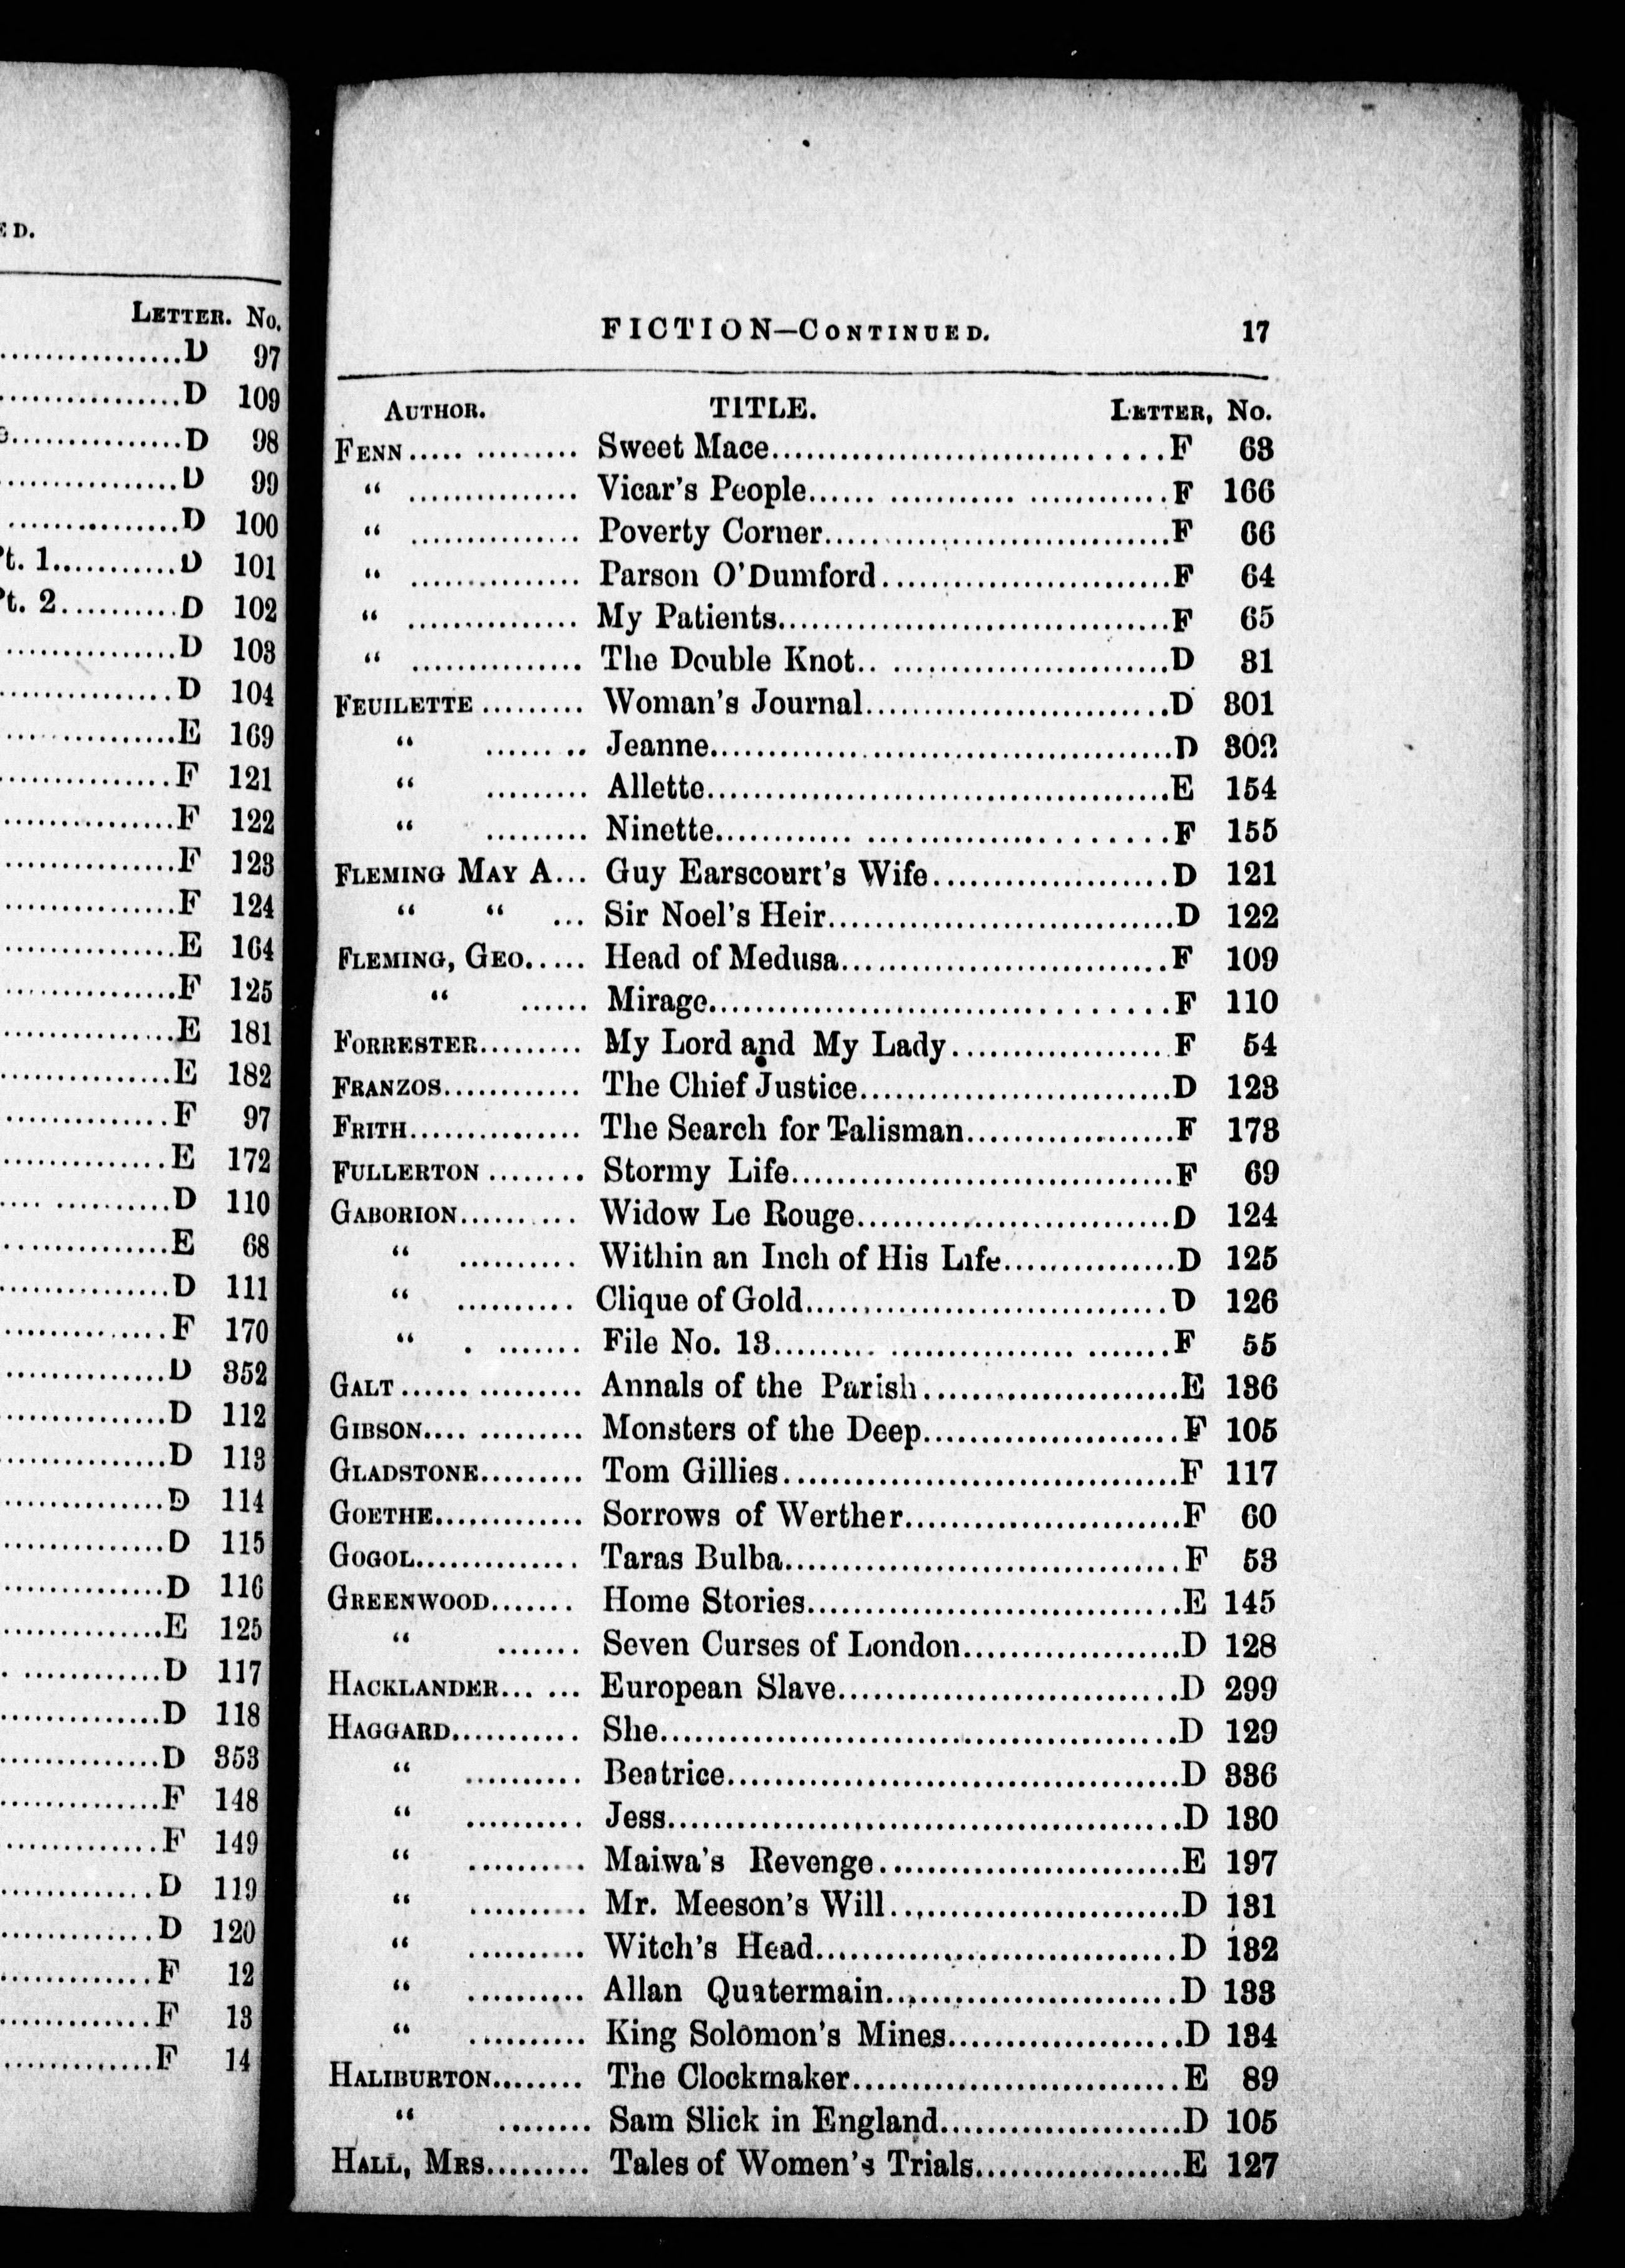 ED.
LETTER. No.
D 97
D 109
D 98
D 99
D 100
Pt. 1...........D 101
Pt. 2..........D 102
D 103
D 104
E 169
F 121
F 122
F 123
F 124
E 164
F 125
E 181
E 182
F 97
E 172
D 110
E 68
D 111
F 170
D 352
D 112
D 113
D 114
D 115
D 116
E 125
D 117
D 118
D 353
F 148
F 149
D 119
D 120
F 12
F 13
F 14
FICTION—CONTINUED. 17
AUTHOR. TITLE. LETTER, No.
FENN..... Sweet Mace.....F 63
“ ..... Vicar's People.....F 166
“ ..... Poverty Corner.....F 66
“ ..... Parson O'Dumford.....F 64
“ ..... My Patients.....F 65
“ ..... The Double Knot.....D 31
FEUILETTE..... Woman's Journal.....D 301
“ ..... Jeanne.....D 302
“ ..... Allette.....E 154
“ ..... Ninette.....F 155
FLEMING MAY A... Guy Earscourt's Wife.....D 121
“ “ ... Sir Noel's Heir.....D 122
FLEMING, GEO..... Head of Medusa.....F 109
“ ..... Mirage.....F 110
FORRESTER..... My Lord and My Lady.....F 54
FRANZOS..... The Chief Justice.....D 123
FRITH..... The Search for Talisman.....F 173
FULLERTON..... Stormy Life.....F 69
GABORION..... Widow Le Rouge.....D 124
“ ..... Within an Inch of His Life.....D 125
“ ..... Clique of Gold.....D 126
“ ..... File No. 13.....F 55
GALT..... Annals of the Parish.....E 136
GIBSON..... Monsters of the Deep.....F 105
GLADSTONE..... Tom Gillies.....F 117
GOETHE..... Sorrows of Werther.....F 60
GOGOL..... Taras Bulba.....F 53
GREENWOOD..... Home Stories.....E 145
“ ..... Seven Curses of London.....D 128
HACKLANDER..... European Slave.....D 299
HAGGARD..... She.....D 129
“ ..... Beatrice.....D 336
“ ..... Jess.....D 130
“ ..... Maiwa's Revenge.....E 197
“ ..... Mr. Meeson's Will.....D 131
“ ..... Witch's Head.....D 132
“ ..... Allan Quatermain.....D 133
“ ..... King Solomon's Mines.....D 134
HALIBURTON..... The Clockmaker.....E 89
“ ..... Sam Slick in England.....D 105
HALL, MRS..... Tales of Women's Trials.....E 127